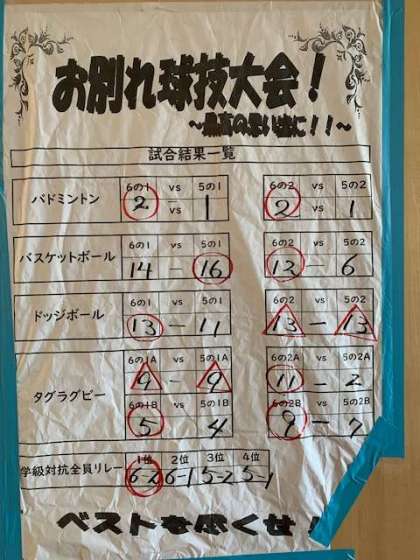 お別れ球技大会！
～最高の思い出に！！～
試合結果一覧
バドミントン 6の1 vs 5の1 6の2 vs 5の1
2 vs 1 2 vs 1
バスケットボール 6の1 vs 5の1 6の2 vs 5の2
14 － 16 12 － 6
ドッジボール 6の1 vs 5の1 6の2 vs 5の2
13 － 11 13 － 13
タグラグビー 6の1A vs 5の1A 6の2A vs 5の2A
9 － 9 11 － 2
6の1B vs 5の1B 6の2B vs 5の2B
5 4 － 7
学級対抗全員リレー 1位 2位 3位 4位
6-2 6-1 5-2 5-1
ベストを尽くせ！